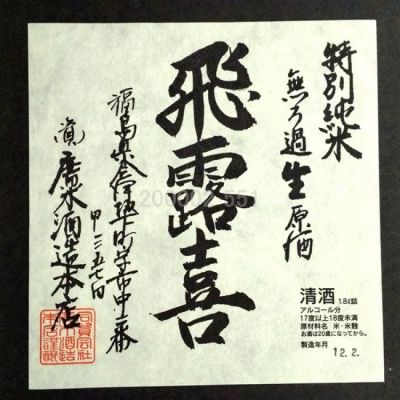 特別純米
無ろ過生原酒
飛露喜
福島県会津坂下町字市中二番
甲三五七四
(資)廣木酒造本店
清酒 1.8ℓ詰
アルコール分
17度以上18度未満
原材料名 米・米麹
お酒は20歳になってから。
製造年月
12.2.